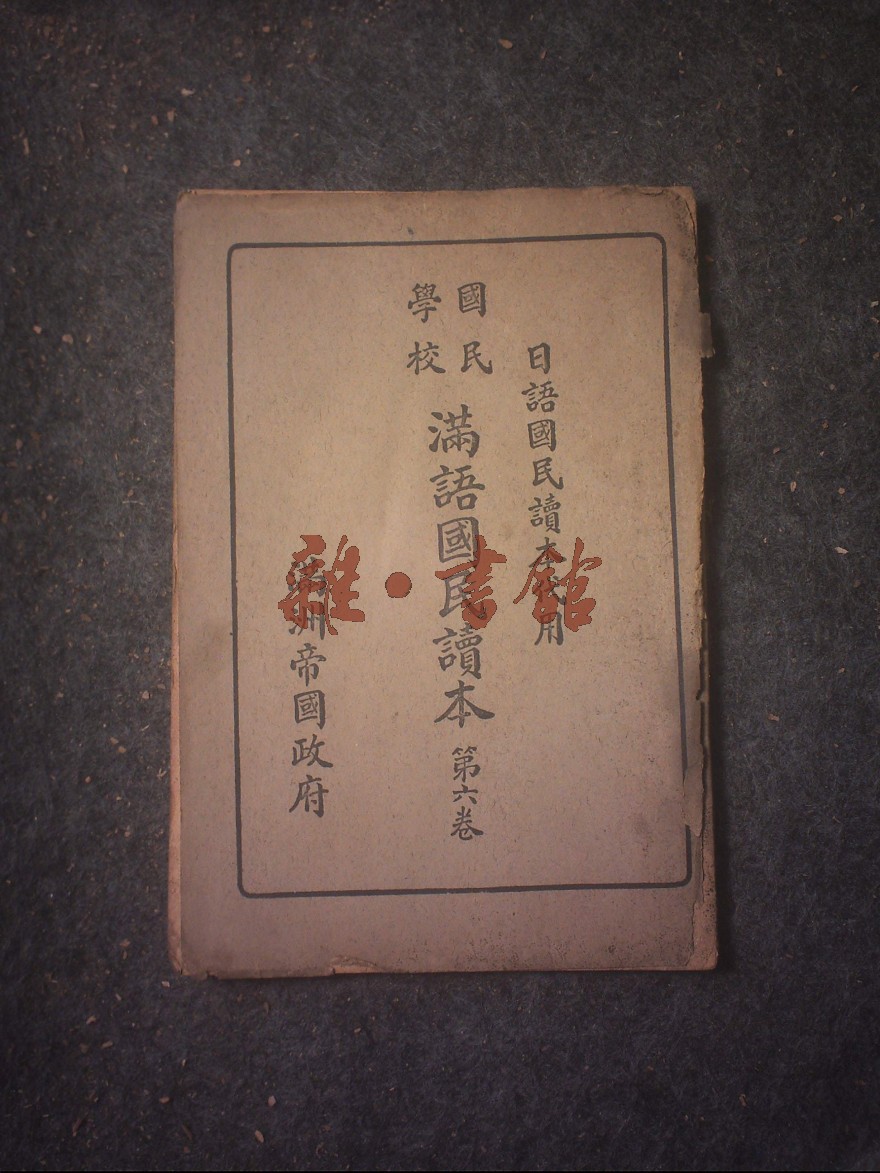 日語國民讀本代用
國民
學校
滿語國民讀本 第六卷
滿洲帝國政府
雜·書館